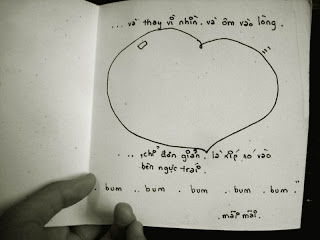 ... và thay vì nhìn. và ôm vào lòng.
... chỉ đơn giản. là xiết nó vào
bên ngực trái.
. bum .. bum . bum . bum . bum . "
. mãi mãi.